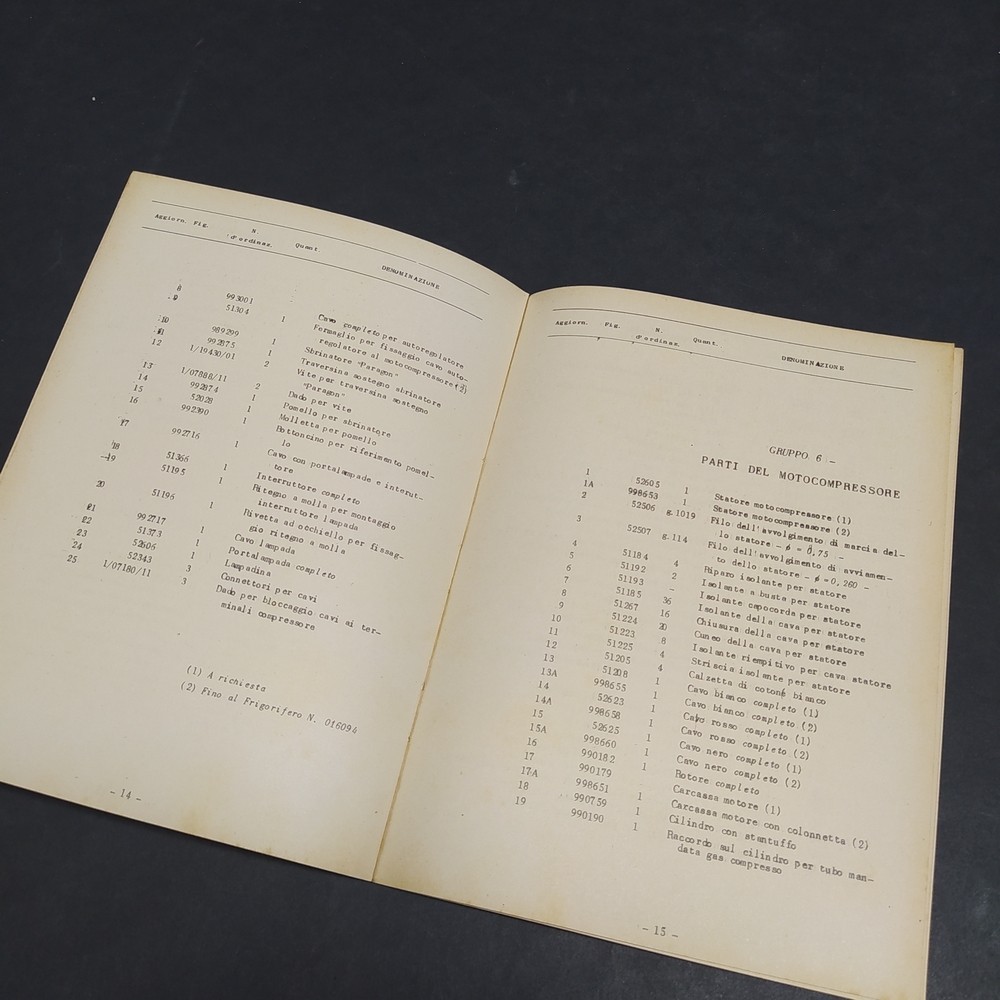 Aggiorn. Fig. N. d'ordinaz. Quant. DENOMINAZIONE
8 993001 1 Cavo completo per autoregolatore
9 51304 1 Fermaglio per fissaggio cavo auto-
regolatore al motocompressore (2)
10 989299 1 Sbrinatore "Paragon"
11 992875 1 Traversina sostegno sbrinatore
12 1/19430/01 2 Vite per traversina sostegno
"Paragon"
13 1/07888/11 2 Dado per vite
14 992874 1 Pomello per sbrinatore
15 52028 1 Molletta per pomello
16 992390 1 Bottoncino per riferimento pomel-
lo
17 992716 1 Cavo con portalampade e interut-
tore
18 51366 1 Interruttore completo
19 51195 1 Ritegno a molla per montaggio
interruttore lampada
20 51196 1 Rivetta ad occhiello per fissag-
gio ritegno a molla
21 992717 1 Cavo lampada
22 51373 1 Portalampada completo
23 52606 1 Lampadina
24 52343 3 Connettori per cavi
25 1/07180/11 3 Dado per bloccaggio cavi ai ter-
minali compressore
(1) A richiesta
(2) Fino al Frigorifero N. 016094
- 14 -
Aggiorn. Fig. N. d'ordinaz. Quant. DENOMINAZIONE
GRUPPO 6 -
PARTI DEL MOTOCOMPRESSORE
1 52605 1 Statore motocompressore (1)
1A 998653 1 Statore motocompressore (2)
2 52506 g.1019 Filo dell'avvolgimento di marcia del-
lo statore - ø = 0,75 -
3 52507 g.114 Filo dell'avvolgimento di avviamen-
to dello statore - ø = 0,260 -
4 51184 4 Riparo isolante per statore
5 51192 2 Isolante a busta per statore
6 51193 - Isolante capocorda per statore
7 51185 36 Isolante della cava per statore
8 51267 16 Chiusura della cava per statore
9 51224 20 Cuneo della cava per statore
10 51223 8 Isolante riempitivo per cava statore
11 51225 4 Striscia isolante per statore
12 51205 4 Calzetta di cotone bianco
13 51208 1 Cavo bianco completo (1)
13A 998655 1 Cavo bianco completo (2)
14 52623 1 Cavo rosso completo (1)
14A 998658 1 Cavo rosso completo (2)
15 52625 1 Cavo nero completo (1)
15A 998660 1 Cavo nero completo (2)
16 990182 1 Rotore completo
17 990179 Carcassa motore (1)
17A 998651 1 Carcassa motore con colonnetta (2)
18 990759 1 Cilindro con stantuffo
19 990190 1 Raccordo sul cilindro per tubo man-
data gas compresso
- 15 -